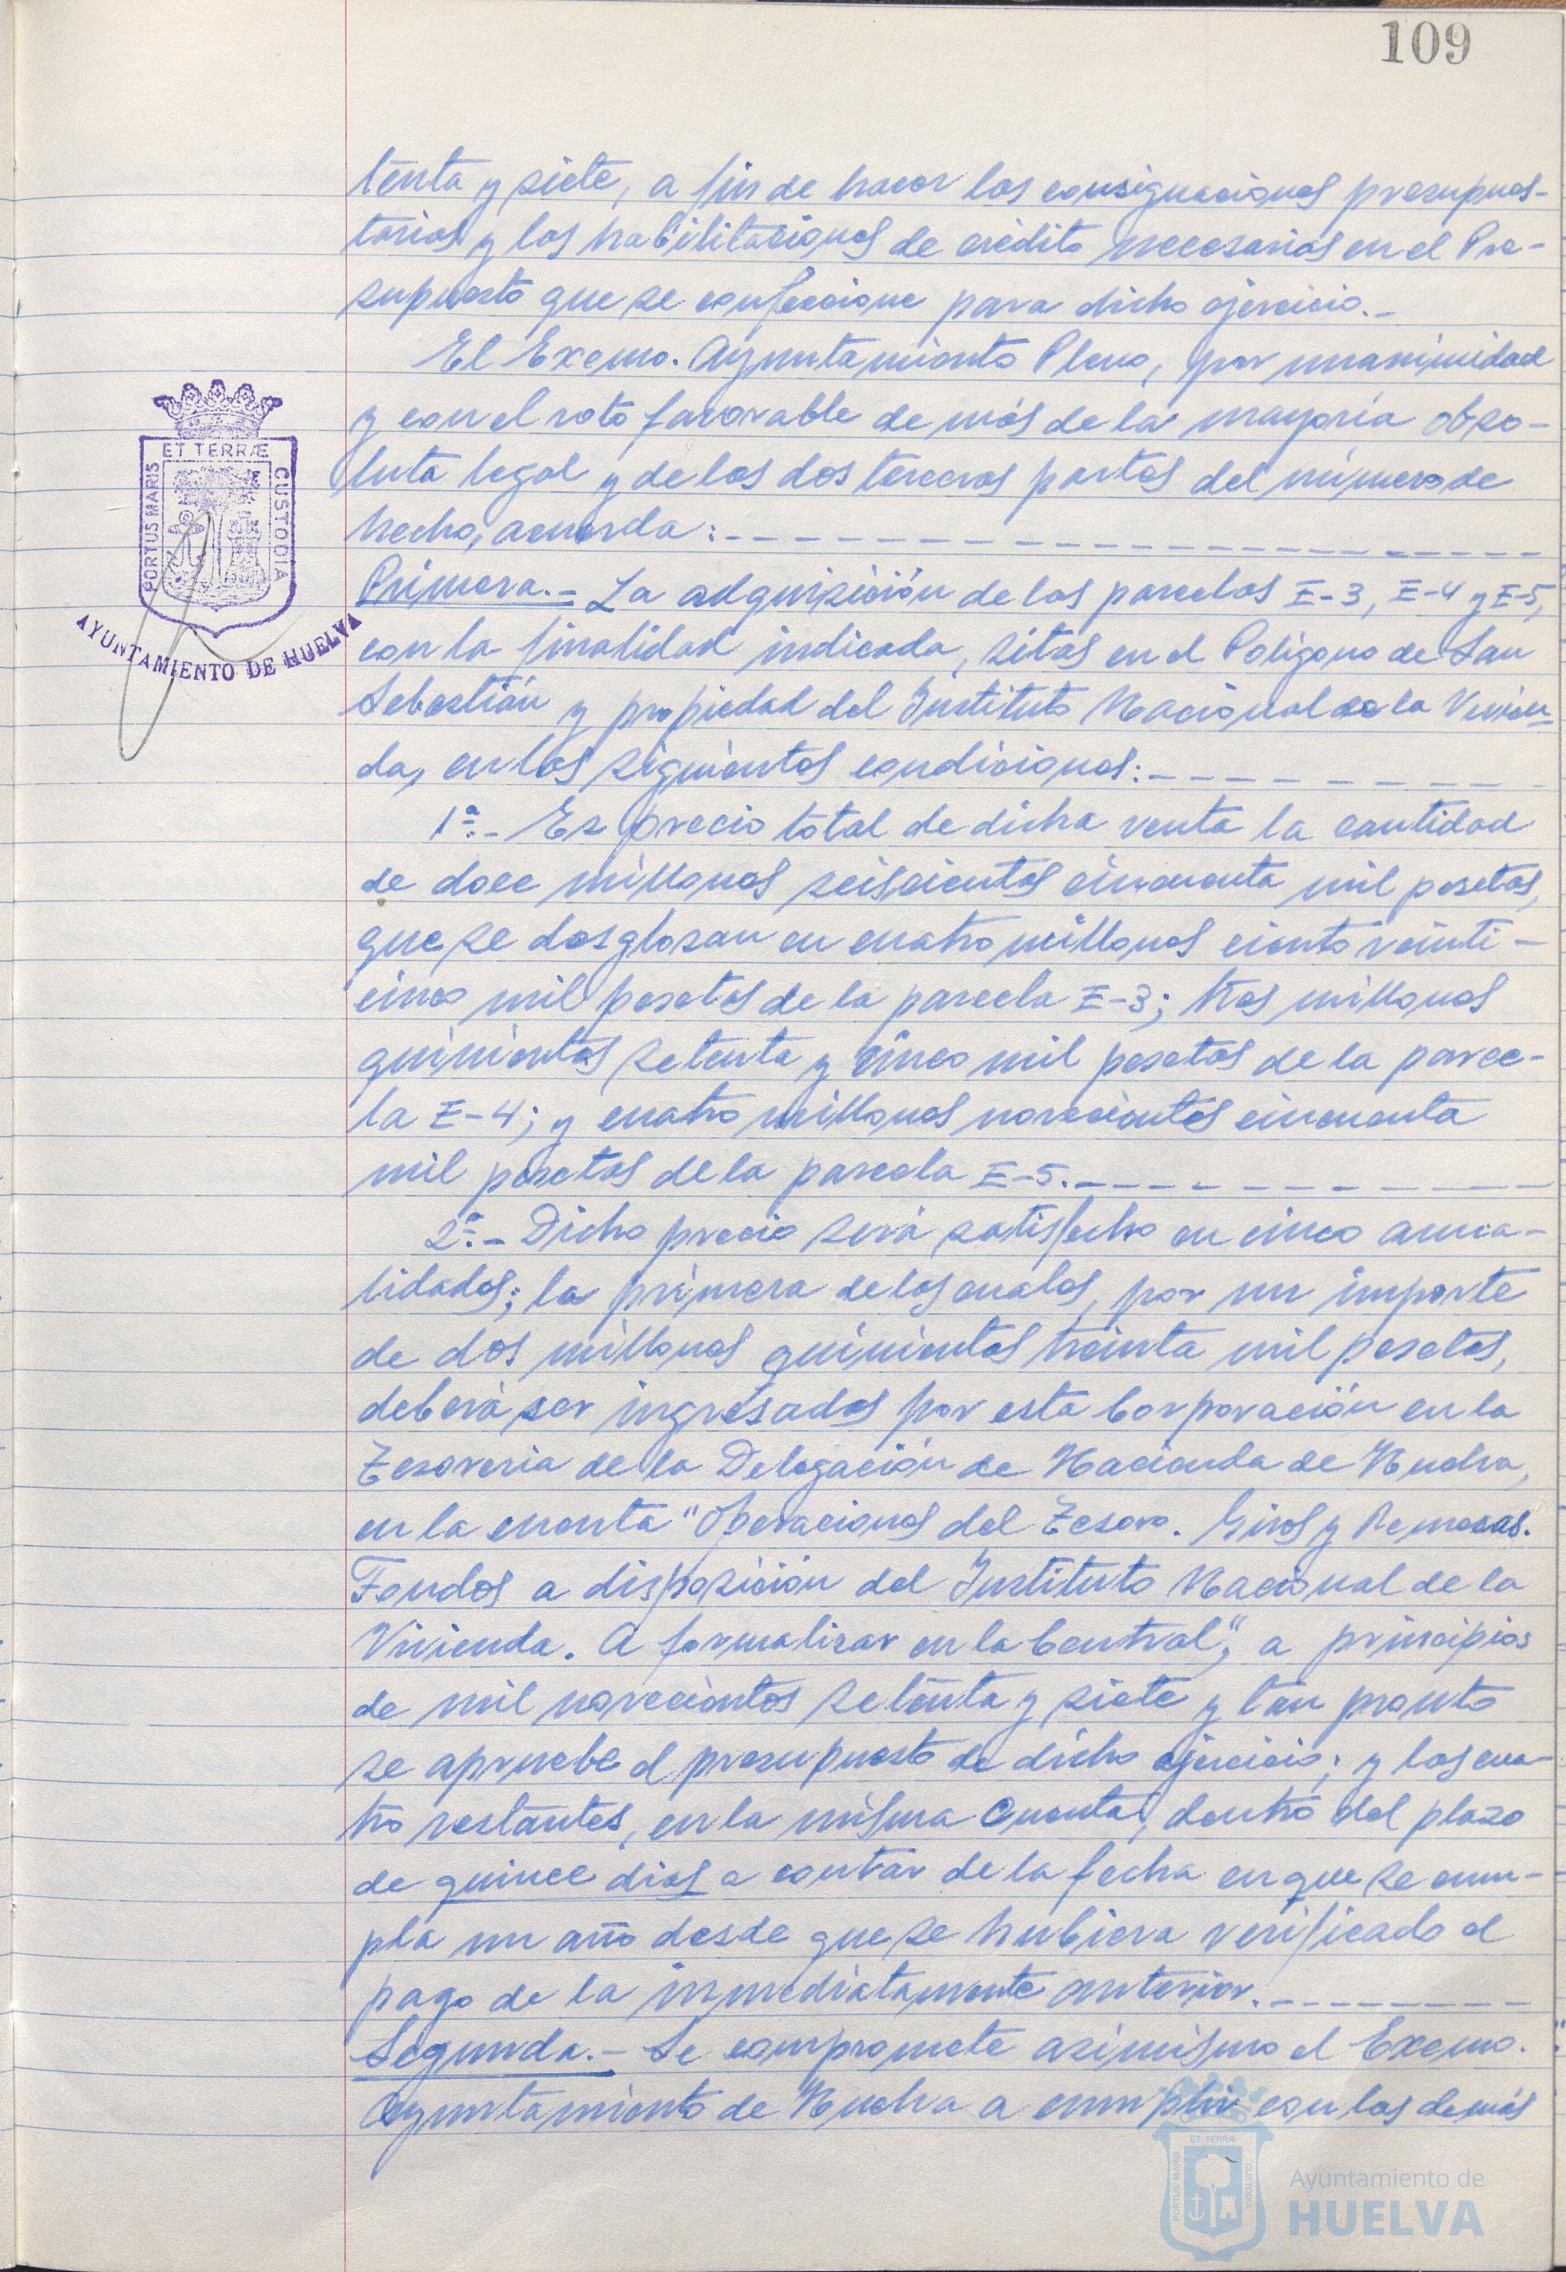 109
tenta y siete, a fin de hacer las consignaciones presupues-
tarias y las habilitaciones de crédito necesarias en el Pre-
supuesto que se confeccione para dicho ejercicio.-
El Excmo. Ayuntamiento Pleno, por unanimidad
y con el voto favorable de más de la mayoría abso-
luta legal y de las dos terceras partes del número de
hecho, acuerda:
Primera.- La adquisición de las parcelas E-3, E-4 y E-5,
con la finalidad indicada, sitas en el Polígono de San
Sebastián y propiedad del Instituto Nacional de la Vivien-
da, en las siguientes condiciones:
1ª.- Es precio total de dicha venta la cantidad
de doce millones seiscientas cincuenta mil pesetas,
que se desglosan en cuatro millones ciento veinti-
cinco mil pesetas de la parcela E-3; tres millones
quinientas setenta y cinco mil pesetas de la parce-
la E-4; y cuatro millones novecientas cincuenta
mil pesetas de la parcela E-5.
2ª.- Dicho precio será satisfecho en cinco anua-
lidades; la primera de las cuales, por un importe
de dos millones quinientas treinta mil pesetas,
deberá ser ingresadas por esta Corporación en la
Tesorería de la Delegación de Hacienda de Huelva,
en la cuenta "Operaciones del Tesoro. Giros y Remesas.
Fondos a disposición del Instituto Nacional de la
Vivienda. A formalizar en la Central", a principios
de mil novecientos setenta y siete y tan pronto
se apruebe el presupuesto de dicho ejercicio; y las cua-
tro restantes, en la misma Cuenta, dentro del plazo
de quince dias a contar de la fecha en que se cum-
pla un año desde que se hubiera verificado el
pago de la inmediatamente anterior.
Segunda.- Se compromete asimismo el Excmo.
Ayuntamiento de Huelva a cumplir con las demás
PORTUS MARIS
ET TERRÆ
CUSTODIA
AYUNTAMIENTO DE HUELVA
PORTUS MARIS
ET TERRÆ
CUSTODIA
Ayuntamiento de
HUELVA